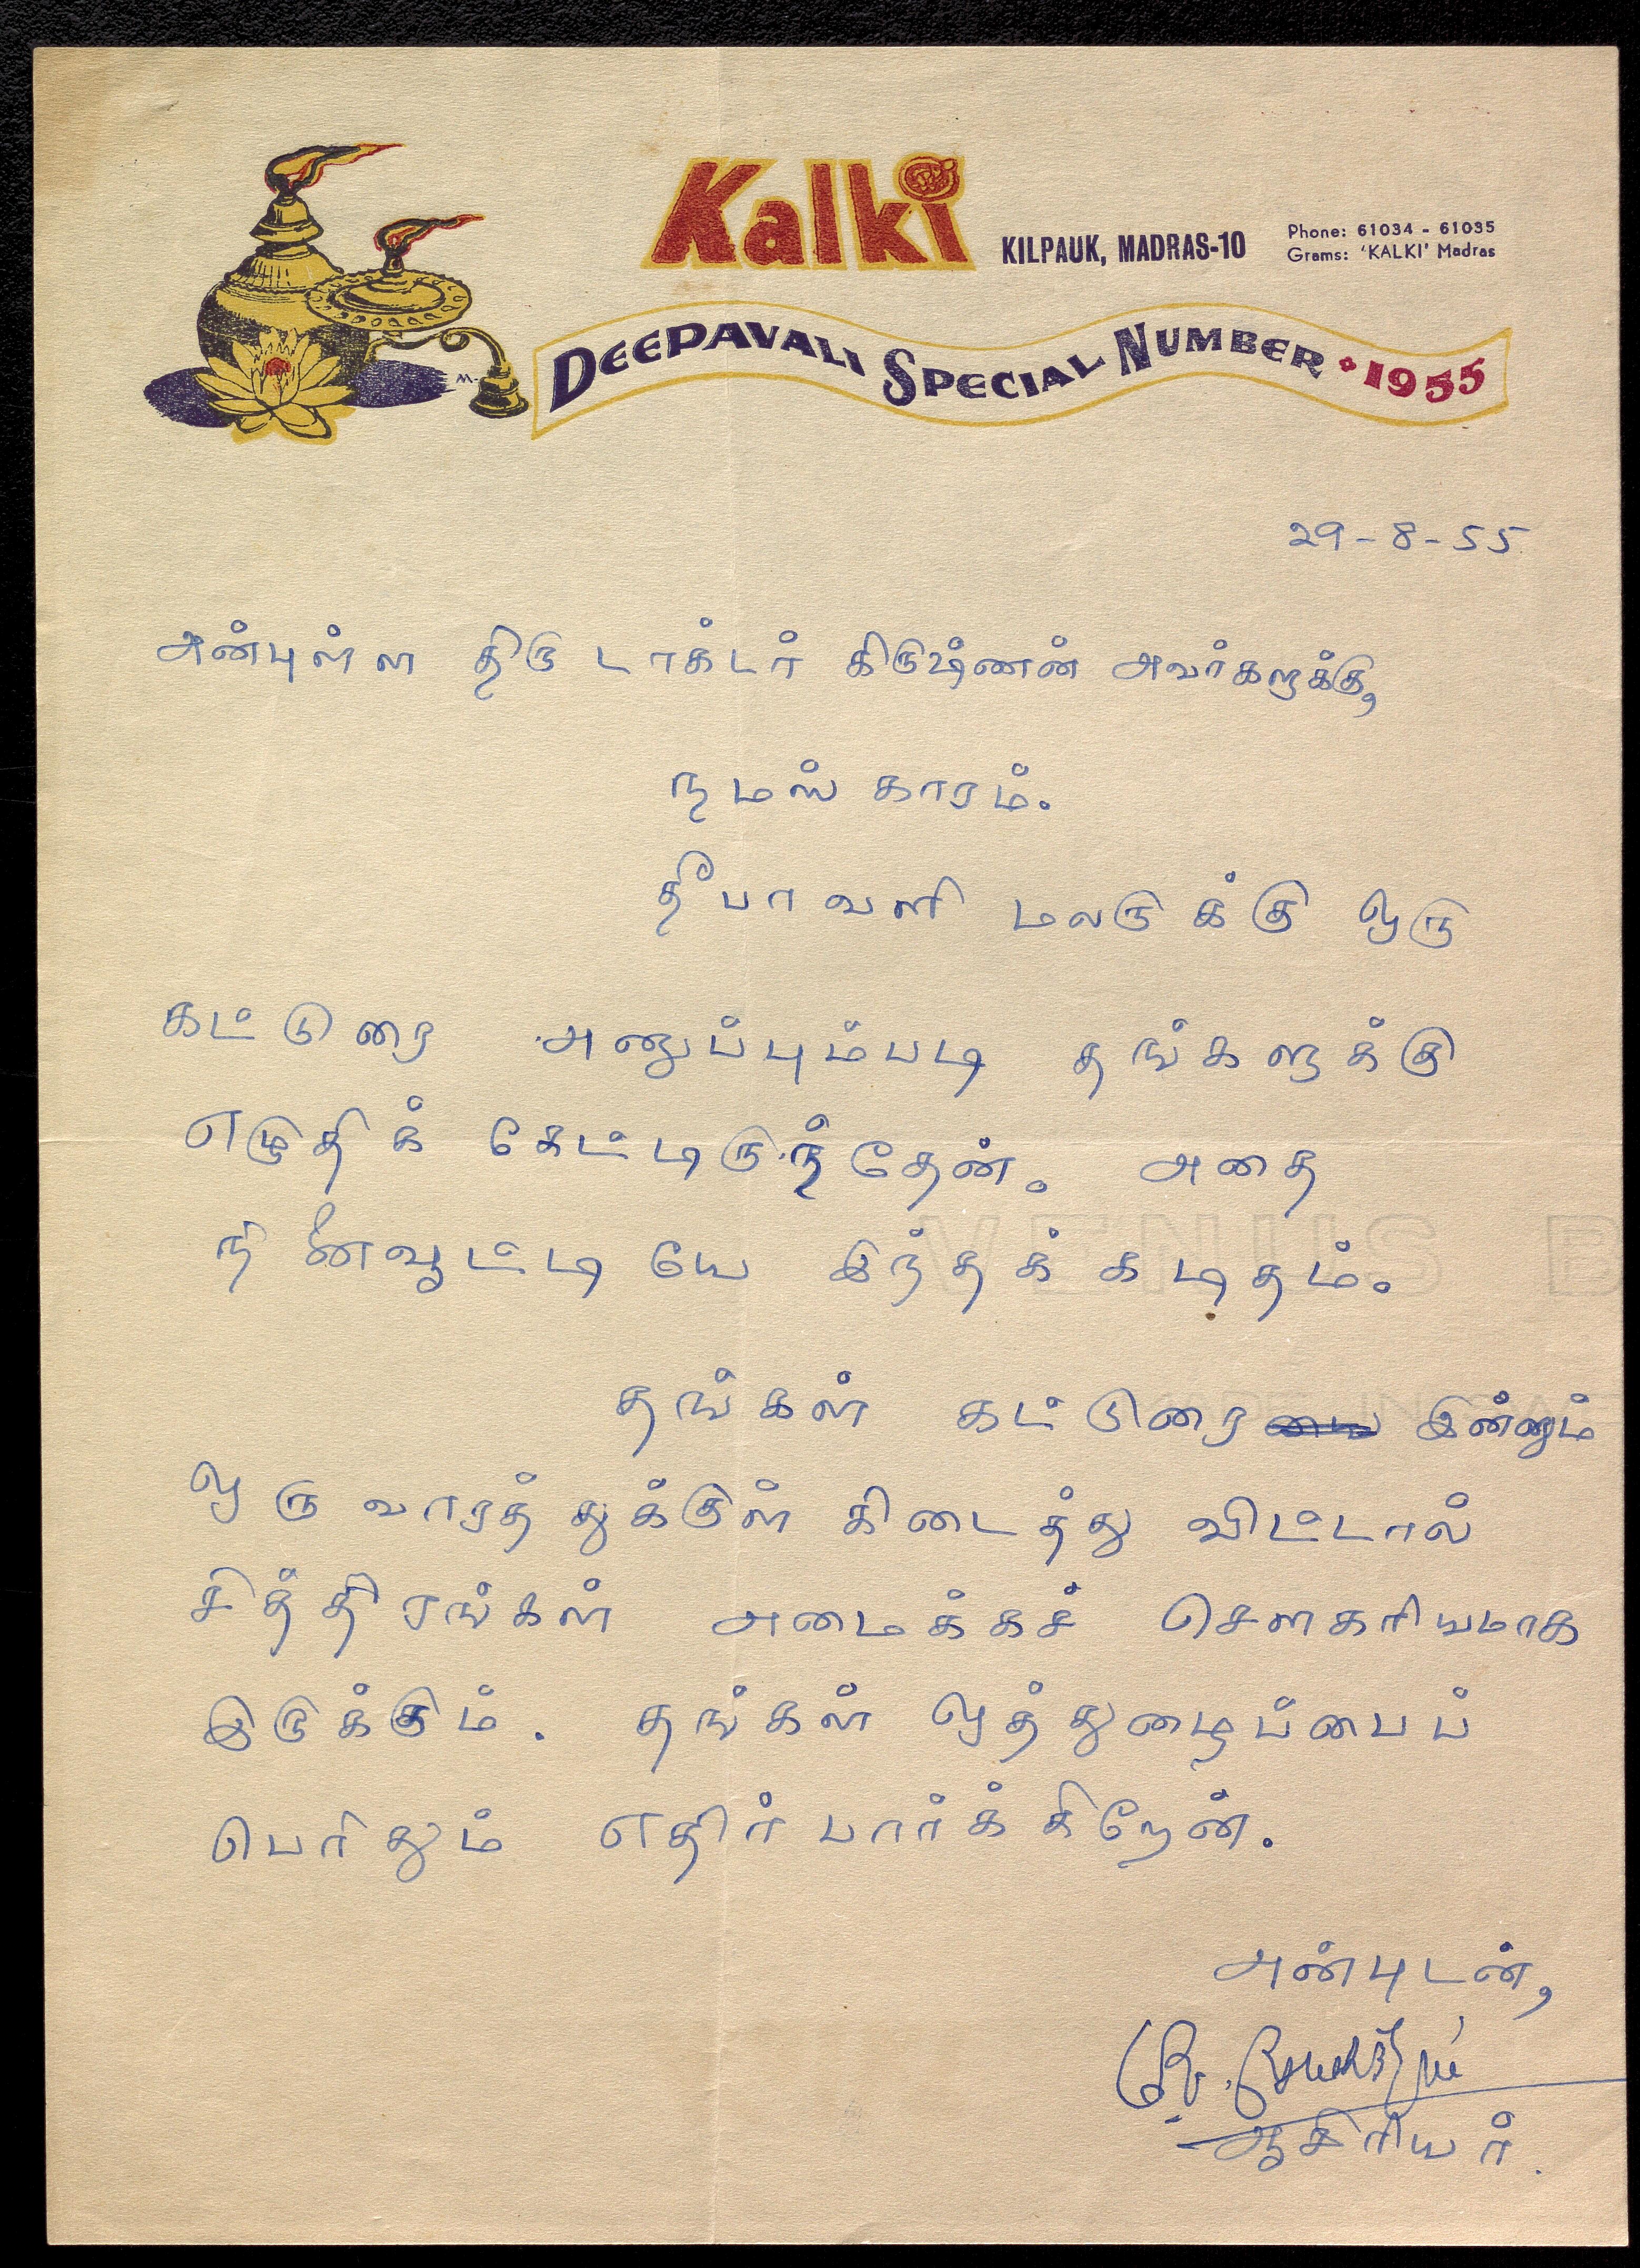 Kalki
KILPAUK, MADRAS-10
Phone: 61034 - 61035
Grams: 'KALKI' Madras
DEEPAVALI SPECIAL NUMBER 1955
29-8-55
அன்புள்ள திரு டாக்டர் கிருஷ்ணன் அவர்களுக்கு,
நமஸ்காரம்.
தீபாவளி மலருக்கு ஒரு
கட்டுரை அனுப்பும்படி தங்களுக்கு
எழுதிக் கேட்டிருந்தேன். அதை
நினைவூட்டியே இந்தக் கடிதம்.
தங்கள் கட்டுரை இன்னும்
ஒரு வாரத்துக்குள் கிடைத்து விட்டால்
சித்திரங்கள் அமைக்கச் சௌகரியமாக
இருக்கும். தங்கள் ஒத்துழைப்பைப்
பெரிதும் எதிர்பார்க்கிறேன்.
அன்புடன்,
ஆசிரியர்.
VENUS B